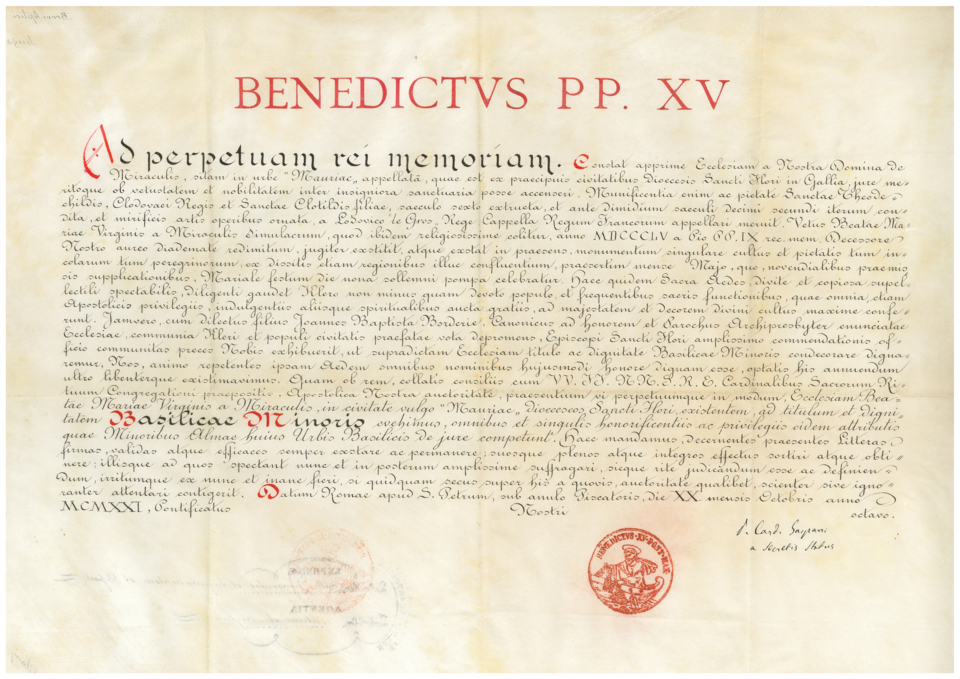 BENEDICTVS PP. XV
Ad perpetuam rei memoriam. Constat apprime Ecclesiam a Nostra Domina de
Miraculis, sitam in urbe "Mauriac" appellatâ, quae est ex praecipuis civitatibus Dioecesis Sancti Flori in Gallia, jure me-
ritoque ob vetustatem et nobilitatem inter insigniora sanctuaria posse accenseri. Munificentia enim ac pietate Sanctae Theode-
childis, Clodovaei Regis et Sanctae Clotildis filiae, saeculo sexto extructa, et ante dimidium saeculi decimi secundi iterum con-
dita, et mirificis artis operibus ornata, a Lodovico le Gros, Rege Cappella Regum Francorum appellari meruit. Vetus Beatae Ma-
riae Virginis a Miraculis simulacrum, quod ibidem religiosissime colitur, anno MDCCCLV a Pio PP. IX rec. mem. Decessore
Nostro aureo diademate redimitum, jugiter exstitit, atque exstat in praesens, monumentum singulare cultus et pietatis tum in-
colarum tum peregrinorum, ex dissitis etiam regionibus illuc confluentium, praesertim mense Majo, quo, novendialibus praemis-
sis supplicationibus, Mariale festum die nona sollemni pompa celebratur. Haec quidem Sacra Aedes, divite et copiosa supel-
lectili spectabilis, diligenti gaudet Klero non minus quam devoto populo, et frequentibus sacris functionibus, quae omnia, etiam
Apostolicis privilegiis, indulgentiis aliisque spiritualibus aucta gratiis, ad majestatem et decorem divini cultus maxime confe-
runt. Jamvero, cum dilectus filius Joannes Baptista Borderie, Canonicus ad honorem et Parochus Archipresbyter enunciatae
Ecclesiae, communia Kleri et populi civitatis praefatae vota depromens, Episcopi Sancti Flori amplissimo commendationis of-
ficio communitas preces Nobis exhibuerit, ut supradictam Ecclesiam titulo ac dignitate Basilicae Minoris condecorare digna-
remur, Nos, animo repetentes ipsam Aedem omnibus nominibus hujusmodi honore dignam esse, optatis his annuendum
ultro libenterque existimavimus. Quam ob rem, collatis consiliis cum VV. FF. N.N. S. R. E. Cardinalibus Sacrorum Ri-
tuum Congregationi praepositis, Apostolica Nostra auctoritate, praesentium vi perpetuumque in modum, Ecclesiam Bea-
tae Mariae Virginis a Miraculis, in civitate vulgo "Mauriac" dioeceseos Sancti Flori, existentem, ad titulum et digni-
tatem Basilicae Minoris evehimus, omnibus et singulis honorificentiis ac privilegiis eidem attributis
quae Minoribus Almae huius Urbis Basilicis de jure competunt. Haec mandamus, decernentes praesentes Litteras
firmas, validas atque efficaces semper exstare ac permanere; suosque plenos atque integros effectus sortiri atque obti-
nere; illisque ad quos spectant nunc et in posterum amplissime suffragari, sicque rite judicandum esse ac definien-
dum, irritumque ex nunc et inane fieri, si quidquam secus super his a quovis, auctoritate qualibet, scienter sive igno-
ranter attentari contigerit. Datum Romae apud S. Petrum, sub anulo Piscatoris, die XX mensis Octobris anno
MCMXXI, Pontificatus Nostri octavo.
P. Card. Gasparri
a Secretis Status
BENEDICTVS·XV·PONT·MAX